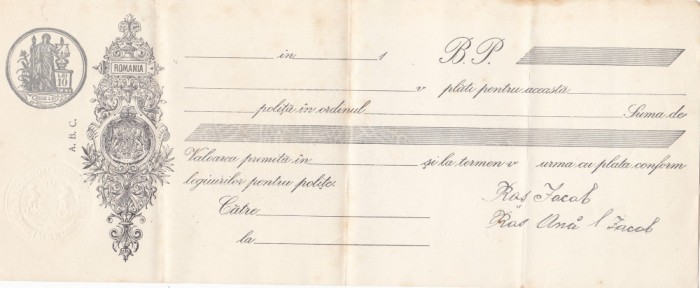 ROMANIA
A. B. C.
în 1 B. P.
v plăti pentru aceasta
poliță în ordinul Suma de
Valoarea primită în și la termen v urma cu plata conform
legiuirilor pentru polițe.
Către
la
Ras Iacob
Ras Ană l Iacob